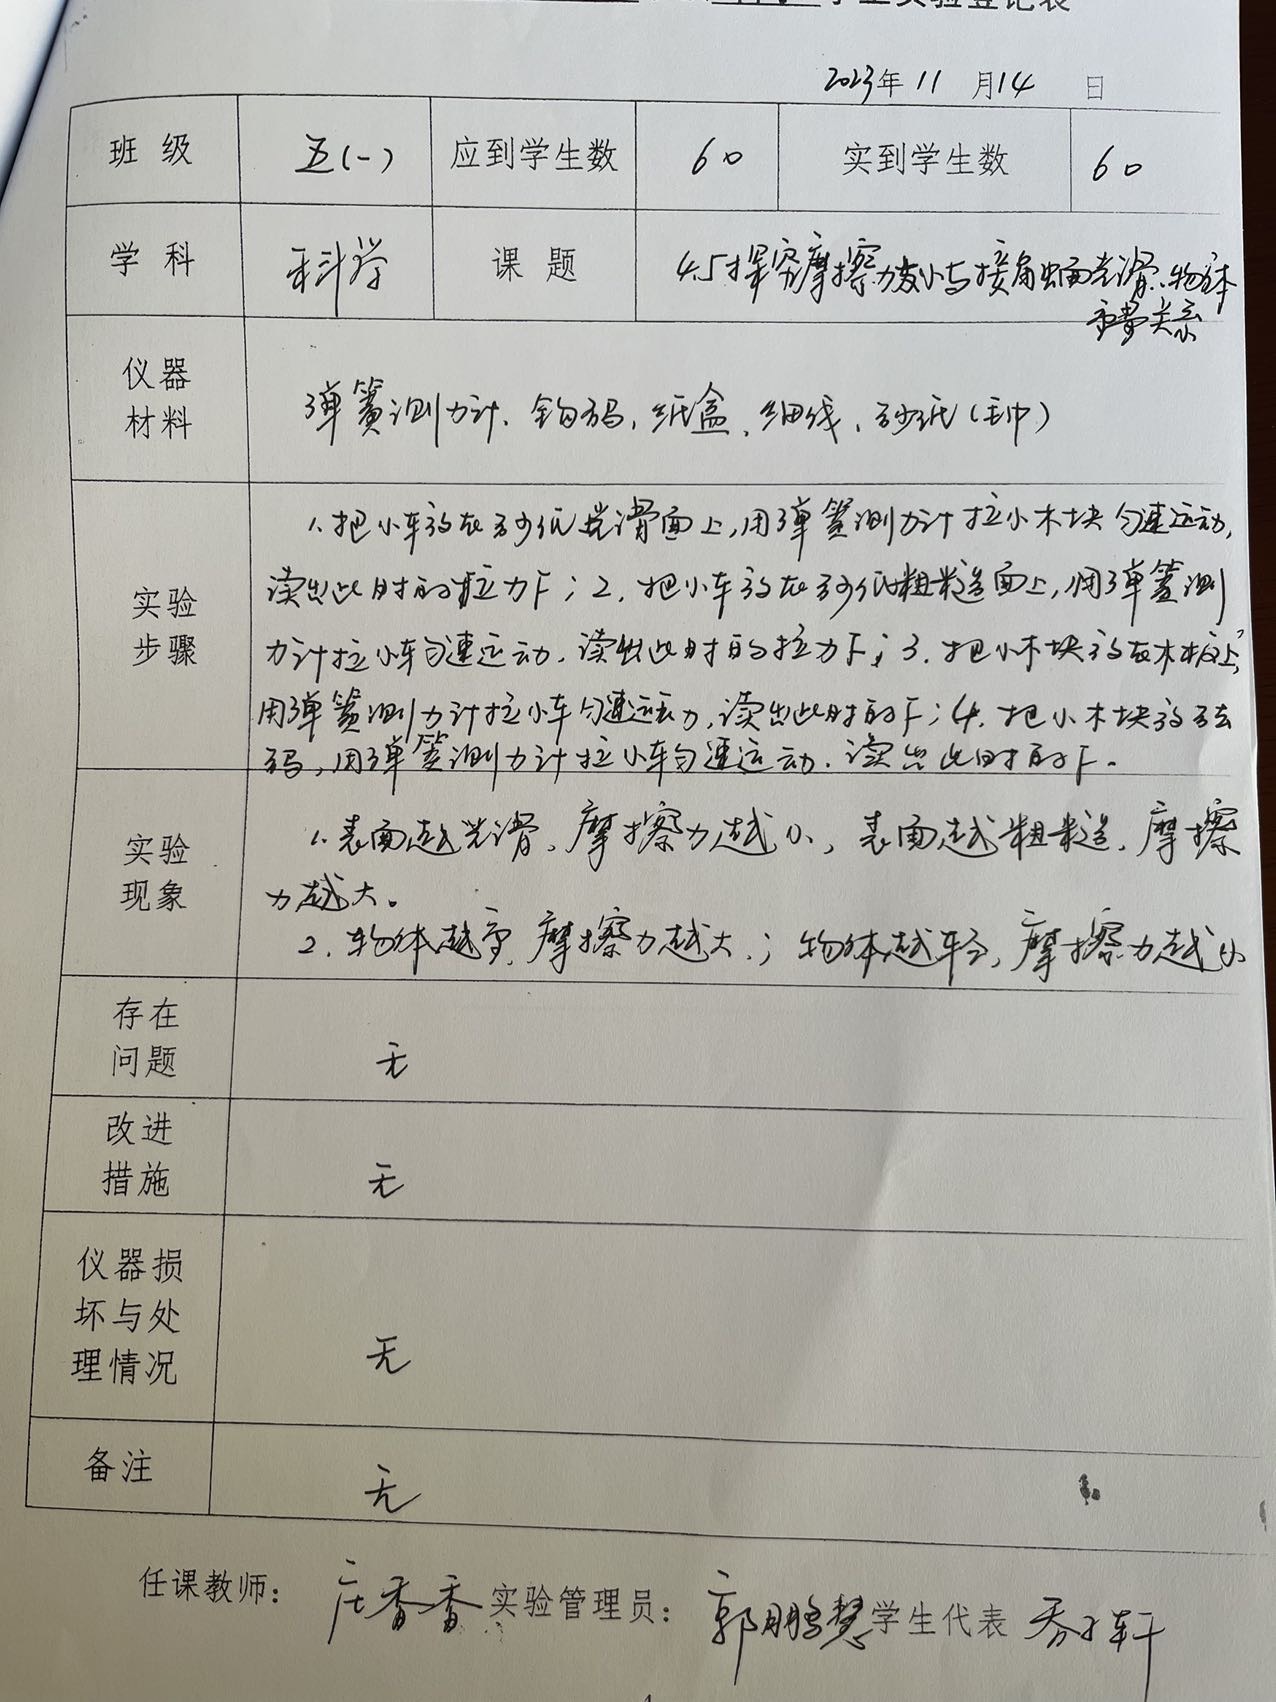 学生实验登记表
2023年11月14日
班级 五(一) 应到学生数 60 实到学生数 60
学科 科学 课题 4.5探究摩擦力大小与接触面光滑、物体
重量关系
仪器
材料
弹簧测力计、钩码、纸盒、细线、砂纸(毛巾)
实验
步骤
1.把小车放在砂纸光滑面上,用弹簧测力计拉小木块匀速运动,
读出此时的拉力F;2.把小车放在砂纸粗糙面上,用弹簧测
力计拉小车匀速运动,读出此时的拉力F;3.把小木块放在木板上,
用弹簧测力计拉小车匀速运动,读出此时的F;4.把小木块放砝
码,用弹簧测力计拉小车匀速运动.读出此时的F.
实验
现象
1.表面越光滑,摩擦力越小,表面越粗糙,摩擦
力越大。
2.物体越重,摩擦力越大.;物体越轻,摩擦力越小
存在
问题
无
改进
措施
无
仪器损
坏与处
理情况
无
备注
无
任课教师: 庄香香 实验管理员: 郭鹏慧 学生代表